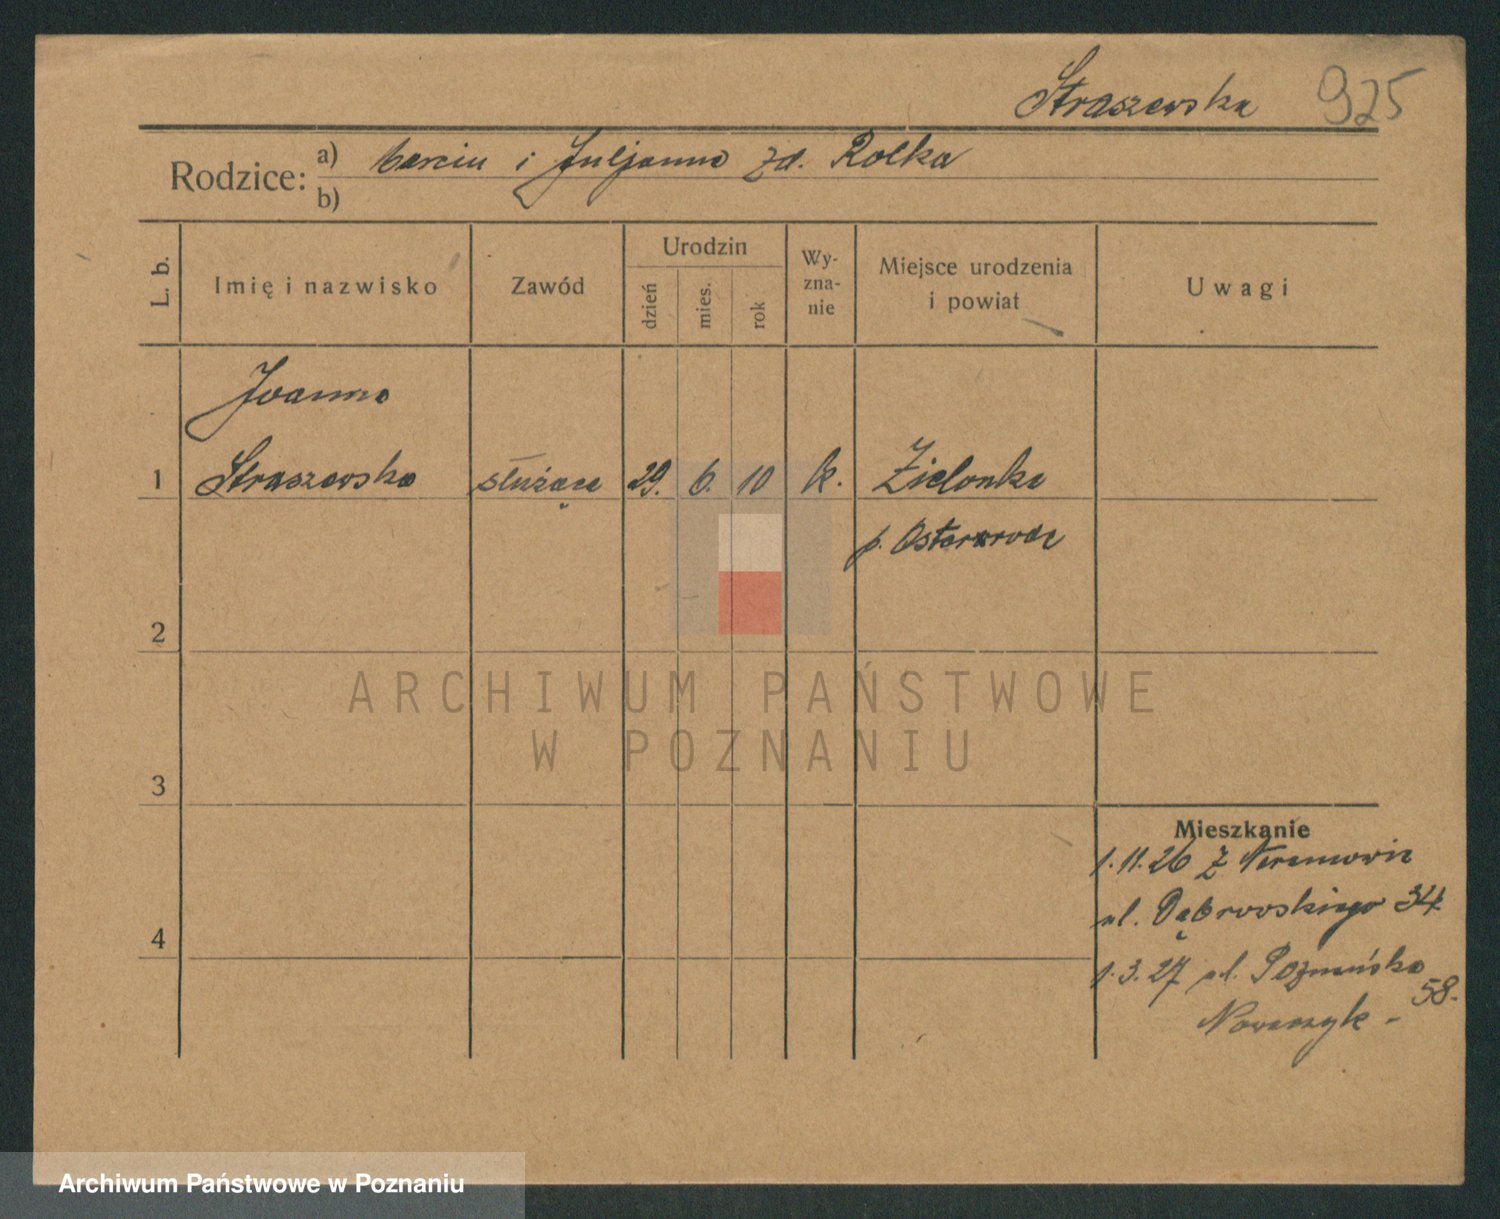 Straszewska 925
Rodzice: a) i Juljanna zd. Rolka
b)
L. b.
Imię i nazwisko
Zawód
Urodzin
dzień
mies.
rok
Wy-
zna-
nie
Miejsce urodzenia
i powiat
Uwagi
Joanna
1 Straszewska służąca 29. 6. 10 k. Zielonka
p. Osterrode
2
3
4
ARCHIWUM PAŃSTWOWE
W POZNANIU
Mieszkanie
1.11.26 z
ul. Dąbrowskiego 34.
1.3.27 ul. Poznańska
58.
Nowaczyk -
Archiwum Państwowe w Poznaniu